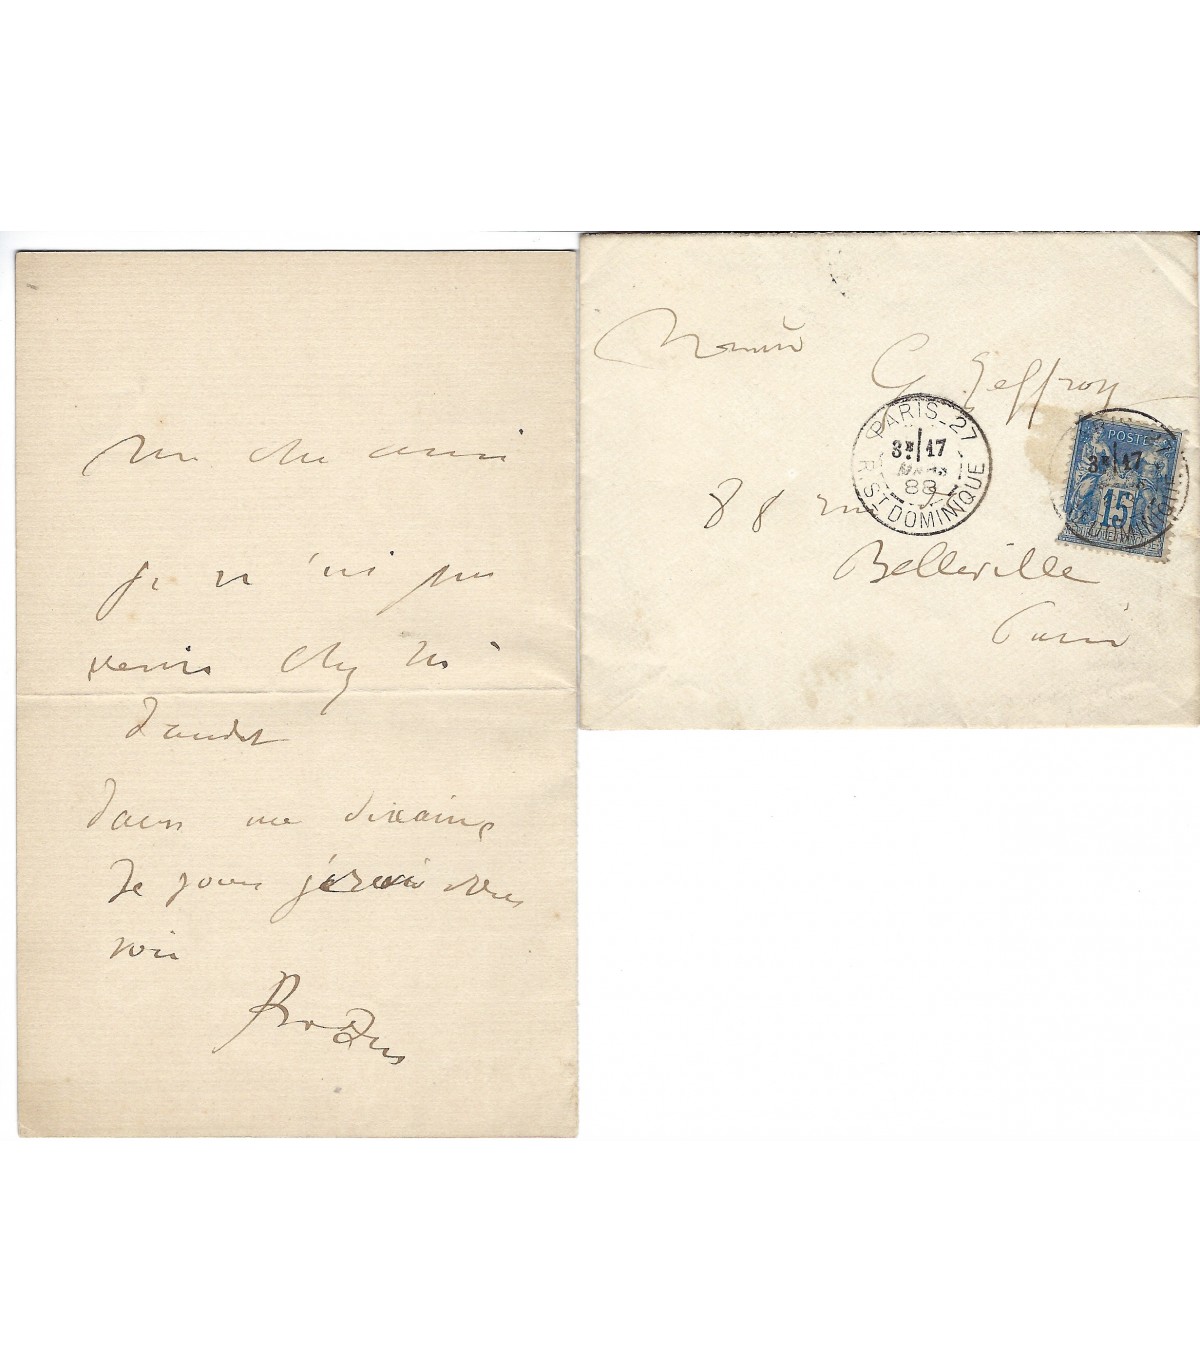 Mon cher ami
je n'ai pu
venir chez M
Daudet
dans une dixaine
de jours j'irai vous
voir
Rodin
Monsieur
G Geffroy
88 rue
Belleville
Paris
PARIS_27
3E 17
MARS
88
R. ST DOMINIQUE
POSTES
15